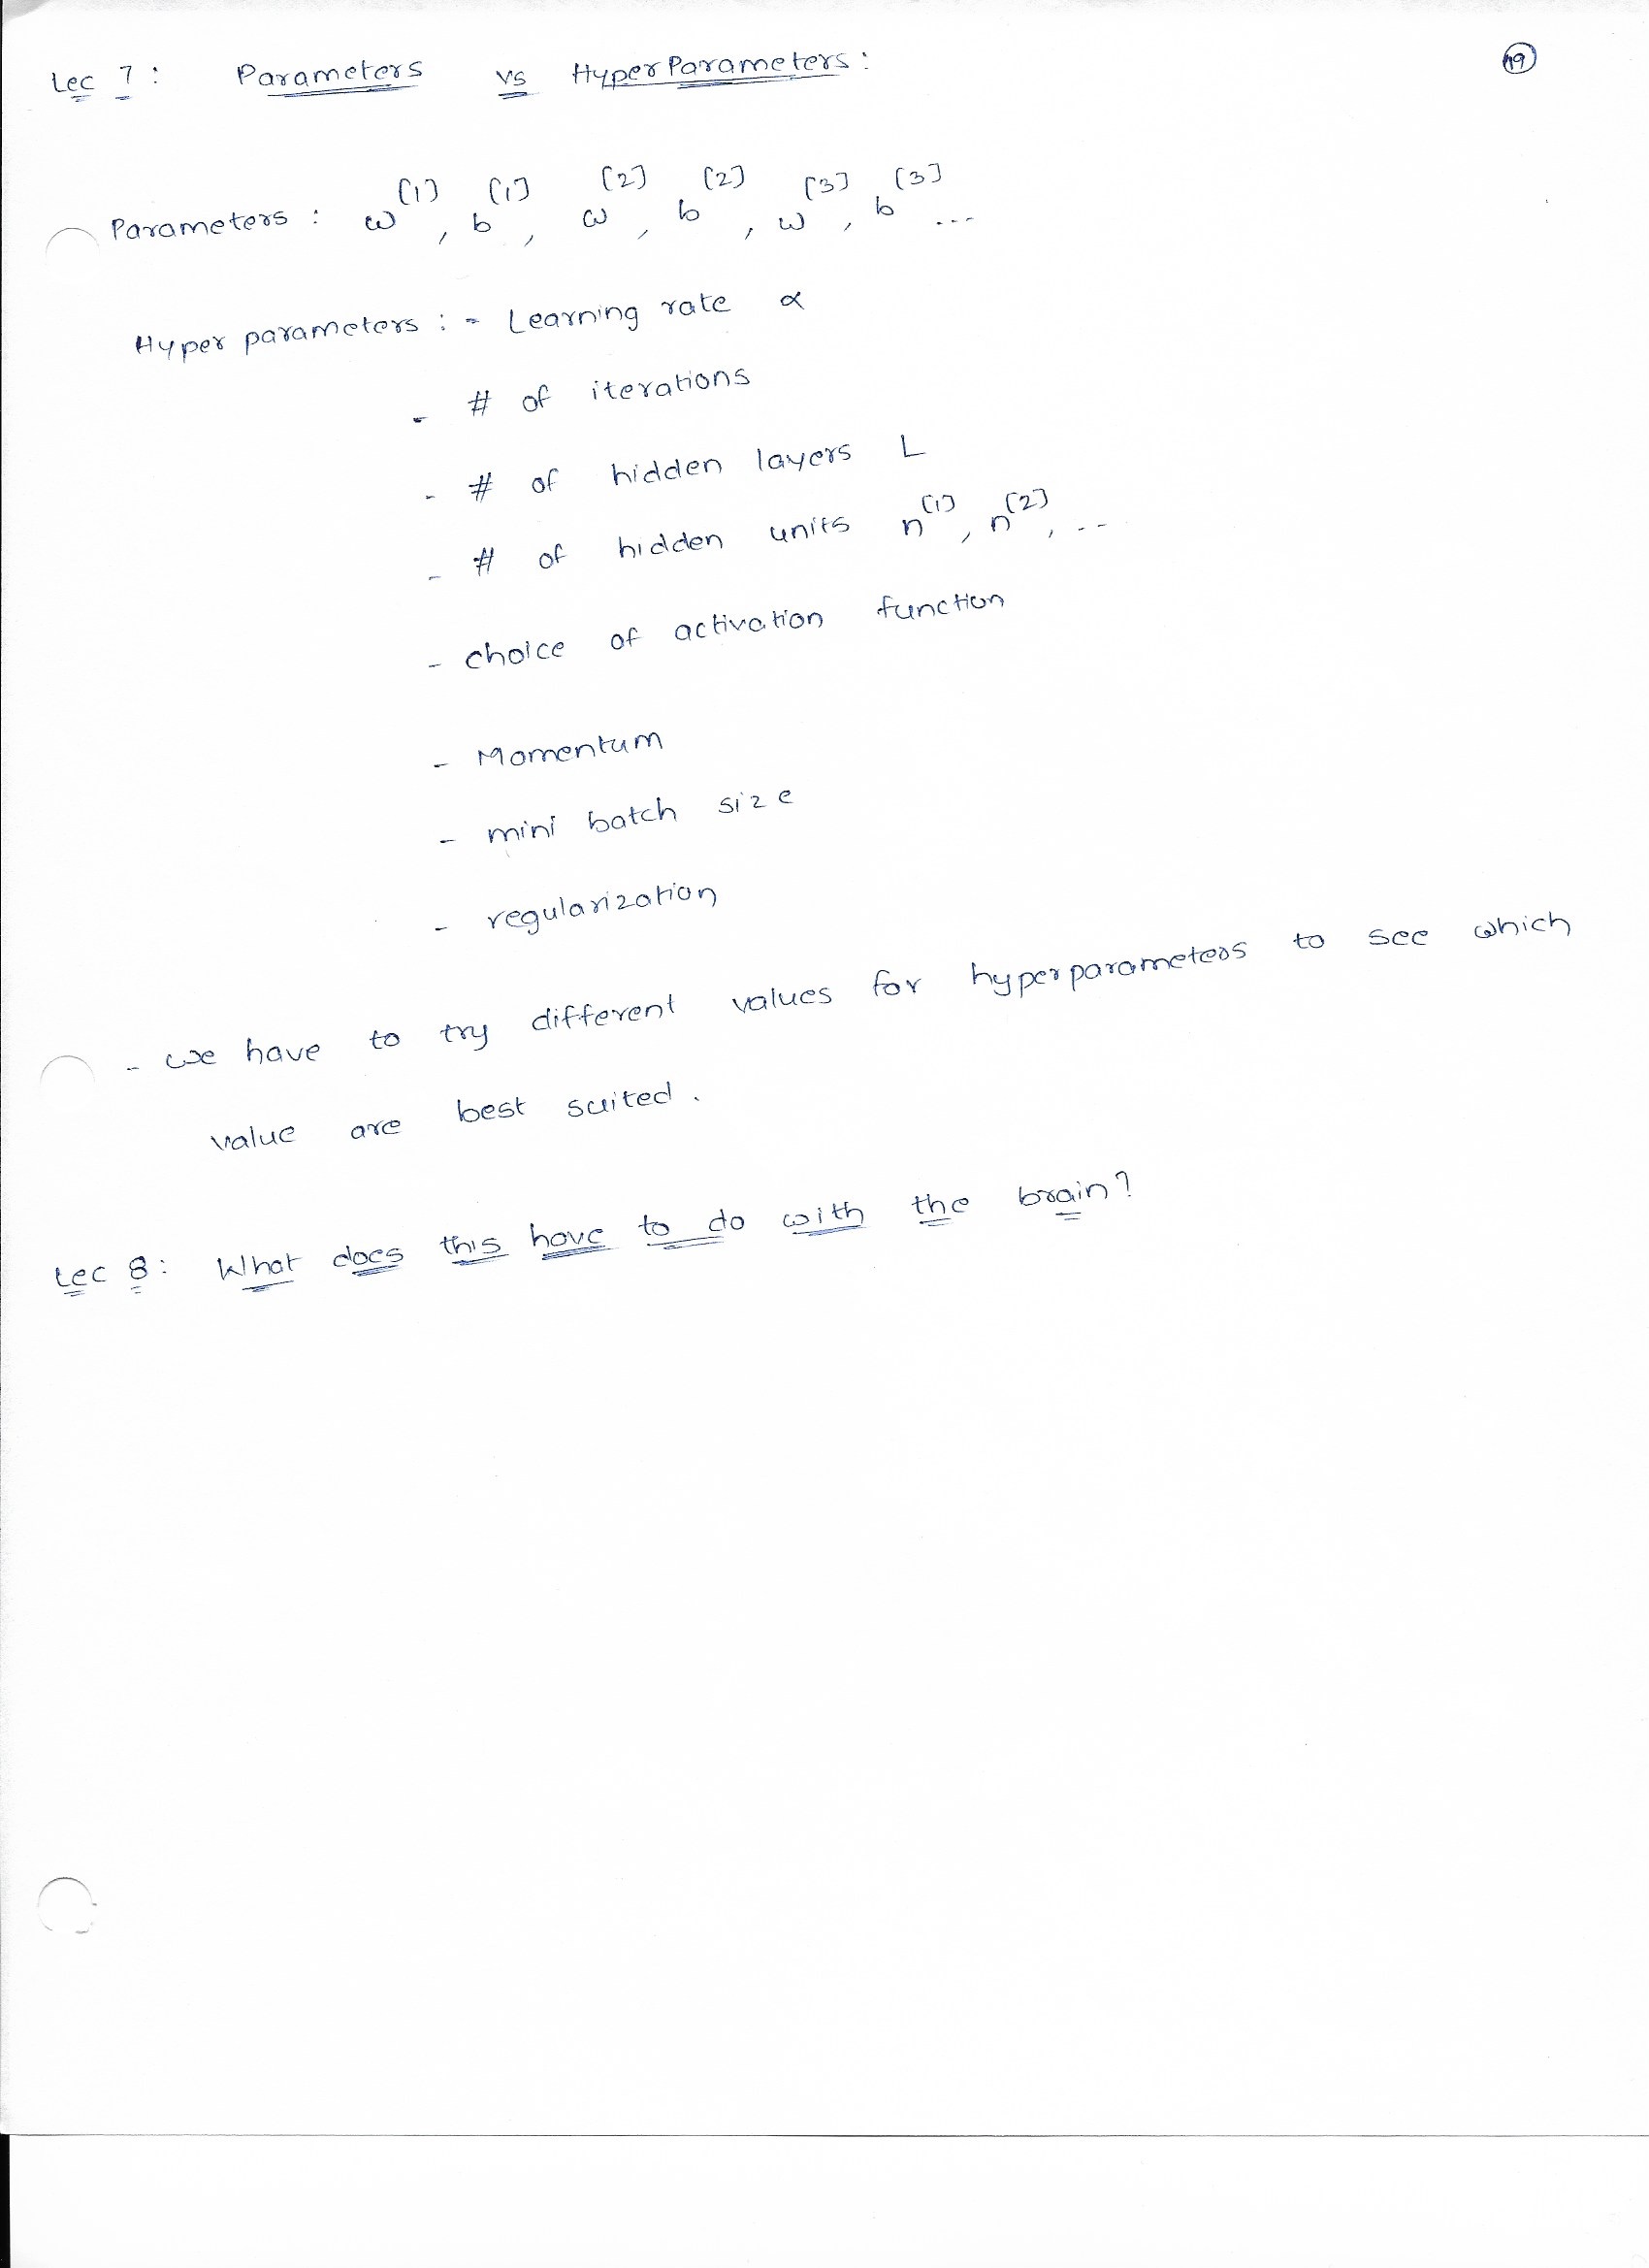 Lec 7: Parameters vs HyperParameters: 19
Parameters : w^[1], b^[1], w^[2], b^[2], w^[3], b^[3] ...
Hyper parameters : - Learning rate α
- # of iterations
- # of hidden layers L
- # of hidden units n^[1], n^[2], ..
- choice of activation function
- Momentum
- mini batch size
- regularization
- we have to try different values for hyperparameters to see which
value are best suited.
Lec 8: What does this have to do with the brain?